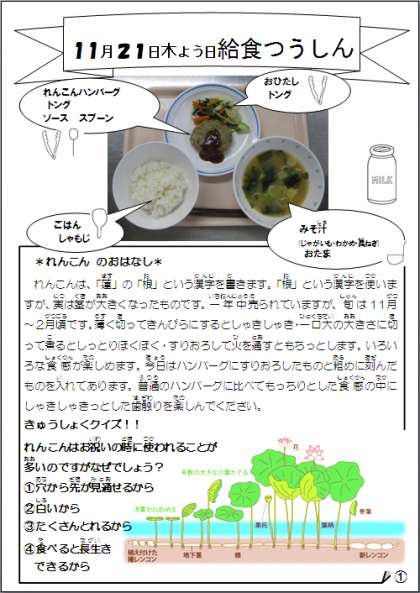 11月21日木よう日給食つうしん
れんこんハンバーグ
トング
ソース　スプーン
おひたし
トング
MILK
ごはん
しゃもじ
みそ汁
(じゃがいも・わかめ・長ねぎ)
おたま
＊れんこん のおはなし＊
れんこんは、「蓮」の「根」という漢字を書きます。「根」という漢字を使いま
すが、実は茎が大きくなったものです。一年中売られていますが、旬は11月
～2月頃です。薄く切ってきんぴらにするとしゃきしゃき・一口大の大きさに切
って煮るとしっとりほくほく・すりおろして火を通すともちっとします。いろい
ろな食感が楽しめます。今日はハンバーグにすりおろしたものと粗めに刻んだ
ものを入れてあります。普通のハンバーグに比べてもっちりとした食感の中に
しゃきしゃきっとした歯触りを楽しんでください。
きゅうしょくクイズ！！
れんこんはお祝いの時に使われることが
多いのですがなぜでしょう？
①穴から先が見通せるから
②白いから
③たくさんとれるから
④食べると長生き
できるから
花
多数の大きな立葉がでる
浮葉が出始める
巻葉
花托
葉柄
植え付けた
種レンコン
地下茎
根
新レンコン
①